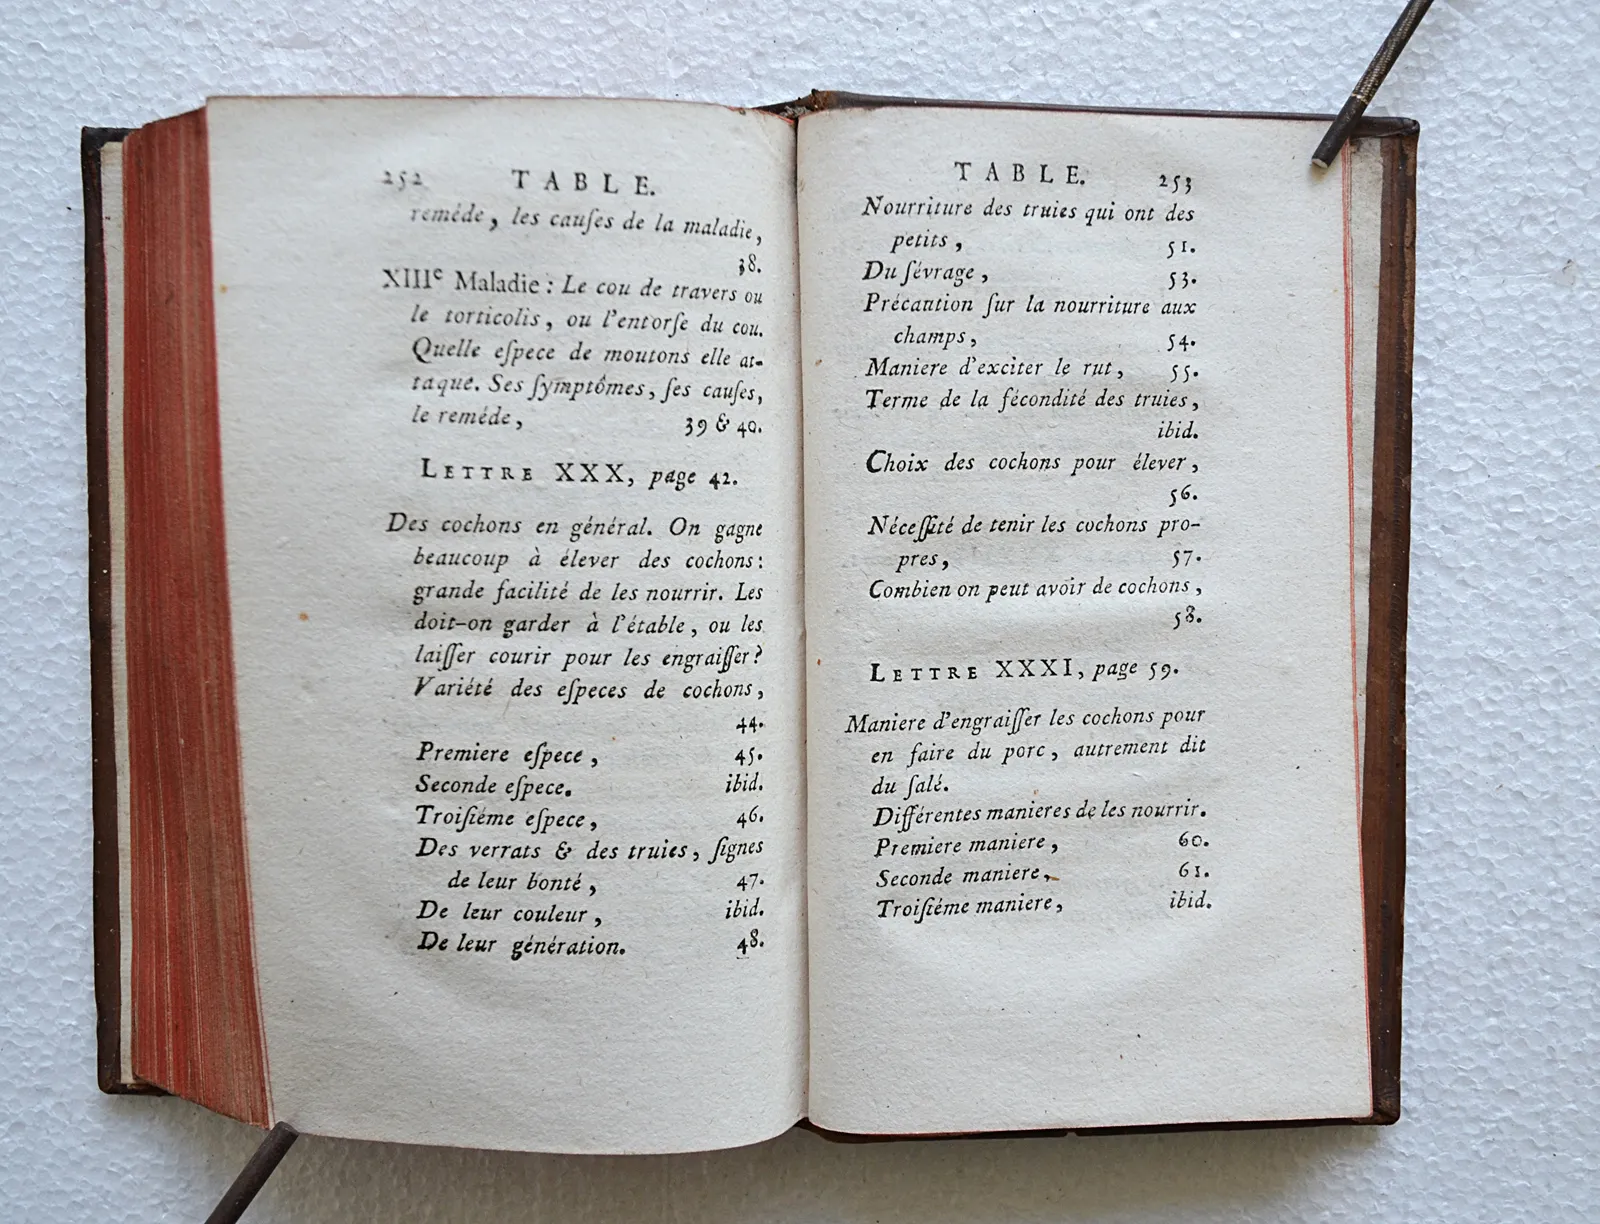 252 TABLE.
reméde, les cauſes de la maladie,
38.
XIIIe Maladie : Le cou de travers ou
le torticolis, ou l'entorſe du cou.
Quelle eſpece de moutons elle at-
taque. Ses ſymptômes, ſes cauſes,
le reméde, 39 & 40.
LETTRE XXX, page 42.
Des cochons en général. On gagne
beaucoup à élever des cochons :
grande facilité de les nourrir. Les
doit-on garder à l'étable, ou les
laiſſer courir pour les engraiſſer ?
Variété des eſpeces de cochons,
44.
Premiere eſpece, 45.
Seconde eſpece. ibid.
Troiſiéme eſpece, 46.
Des verrats & des truies, ſignes
de leur bonté, 47.
De leur couleur, ibid.
De leur génération. 48.
TABLE. 253
Nourriture des truies qui ont des
petits, 51.
Du ſévrage, 53.
Précaution ſur la nourriture aux
champs, 54.
Maniere d'exciter le rut, 55.
Terme de la fécondité des truies,
ibid.
Choix des cochons pour élever,
56.
Néceſſité de tenir les cochons pro-
pres, 57.
Combien on peut avoir de cochons,
58.
LETTRE XXXI, page 59.
Maniere d'engraiſſer les cochons pour
en faire du porc, autrement dit
du ſalé.
Différentes manieres de les nourrir.
Premiere maniere, 60.
Seconde maniere, 61.
Troiſiéme maniere, ibid.